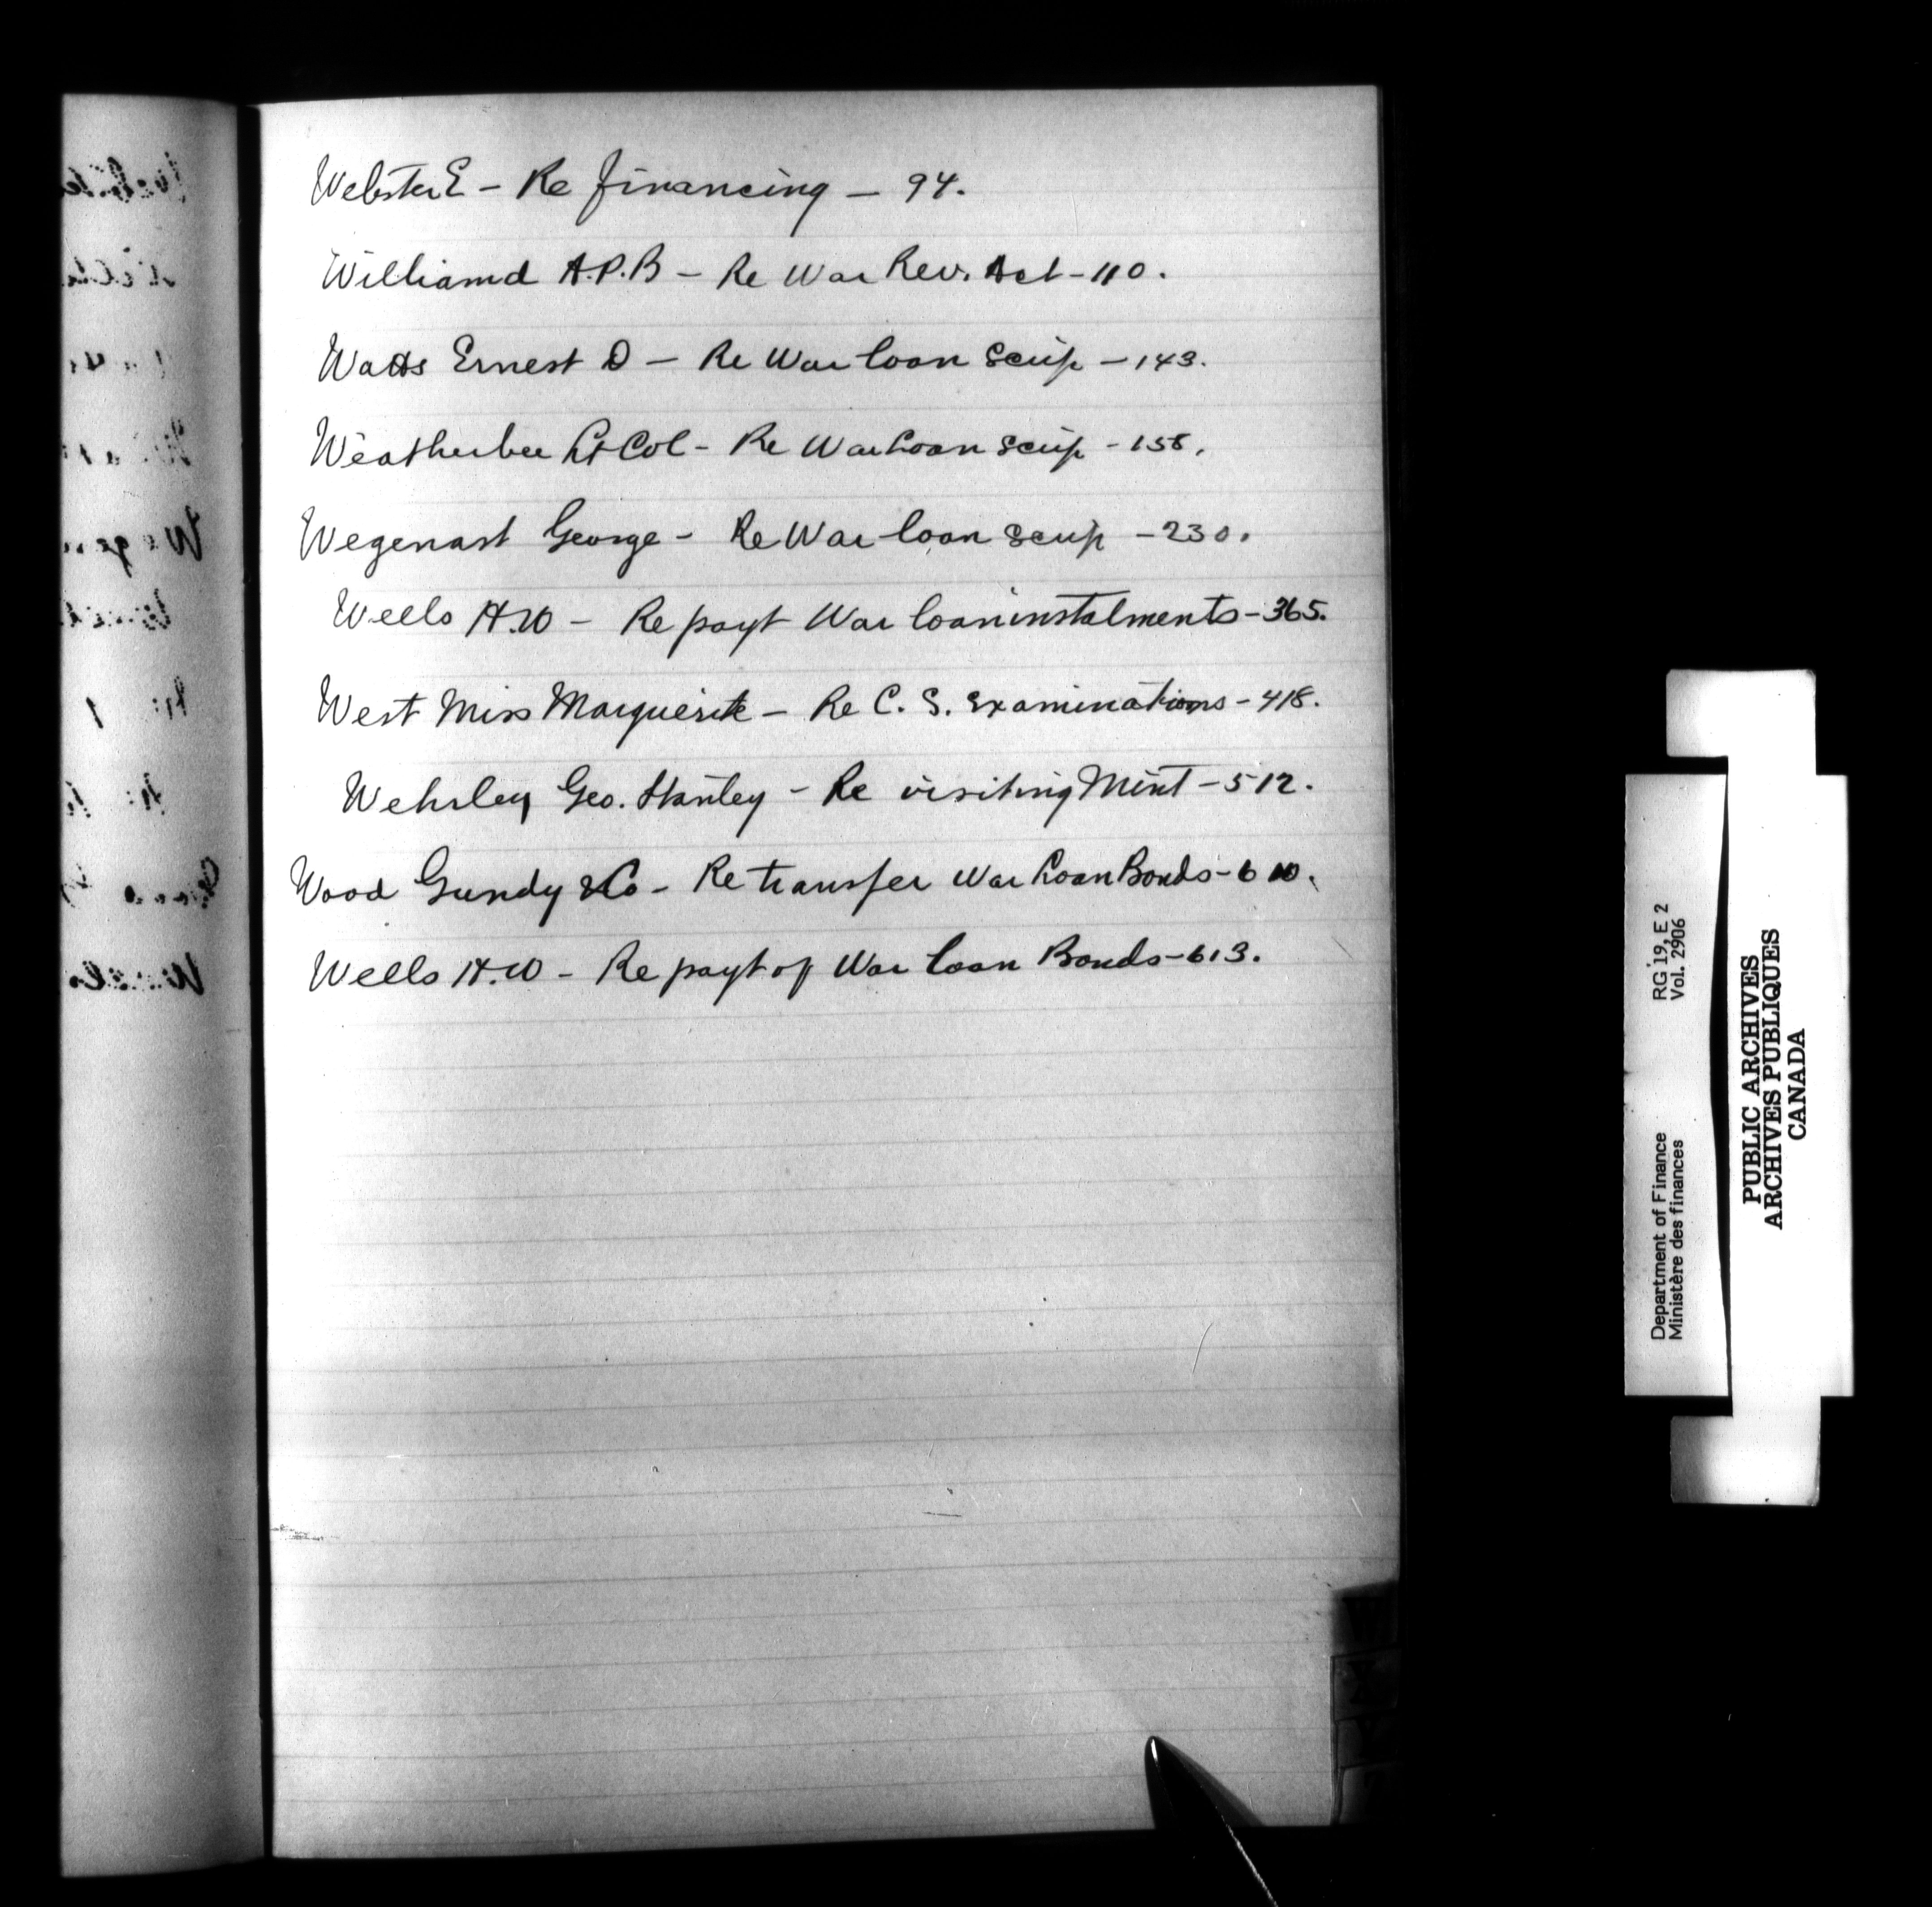 Webster E - Re financing - 94.
Williamd A.P.B - Re War Rev. Act - 110.
Watts Ernest D - Re War loan Scrip - 143.
Weatherbee Lt Col - Re War Loan Scrip - 158.
Wegenast George - Re War loan Scrip - 230.
Wells H.W - Re payt War loan instalments - 365.
West Miss Marguerite - Re C. S. Examinations - 418.
Wehrley Geo. Stanley - Re visiting Mint - 512.
Wood Gundy & Co - Re transfer War Loan Bonds - 610.
Wells H.W - Re payt of War Loan Bonds - 613.
W
X
Y
Department of Finance RG 19, E 2
Ministère des finances Vol. 2906
PUBLIC ARCHIVES
ARCHIVES PUBLIQUES
CANADA